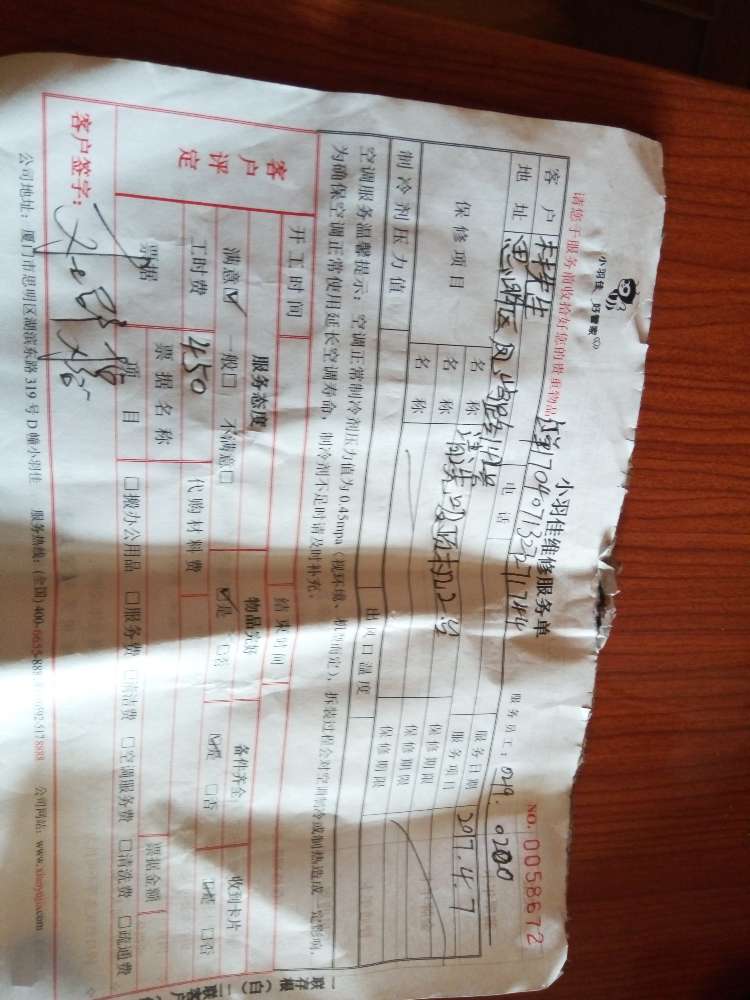 小羽佳 好管家
小羽佳维修服务单
NO. 0058672
请您于服务前收拾好您的贵重物品
服务员工: 029. 0200
客户 林先生
电话
服务日期 2017.4.7
地址 思明区
服务项目
保修项目
名称
保修期限
名称
保修期限
名称
保修期限
制冷剂压力值
出风口温度
空调服务温馨提示: 空调正常制冷剂压力值为0.45mpa (视环境、机型而定), 拆装过程会对空调制冷或制热造成一定影响,
为确保空调正常使用延长空调寿命, 制冷剂不足时请及时补充。
开工时间
结束时间
客户评定
服务态度
物品完好
备件齐全
收到卡片
满意☑ 一般□ 不满意□
☑是 □否
☑是 □否
☑是 □否
工时费 450
代购材料费
票据
票据名称
票据金额
项目
□搬办公用品 □服务费 □清洁费 □空调服务费 □清洗费 □疏通费
客户签字:
公司地址: 厦门市思明区湖滨东路319号D幢小羽佳 服务热线: (全国) 400-6655-888 公司网站: www.xiaoyujia.com
一联存根 (白) 二联客户